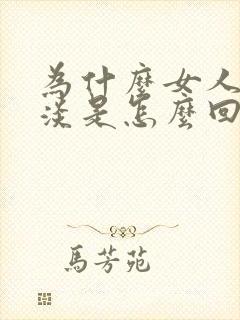 為什麼女人
淡是怎麼回
馬芳苑